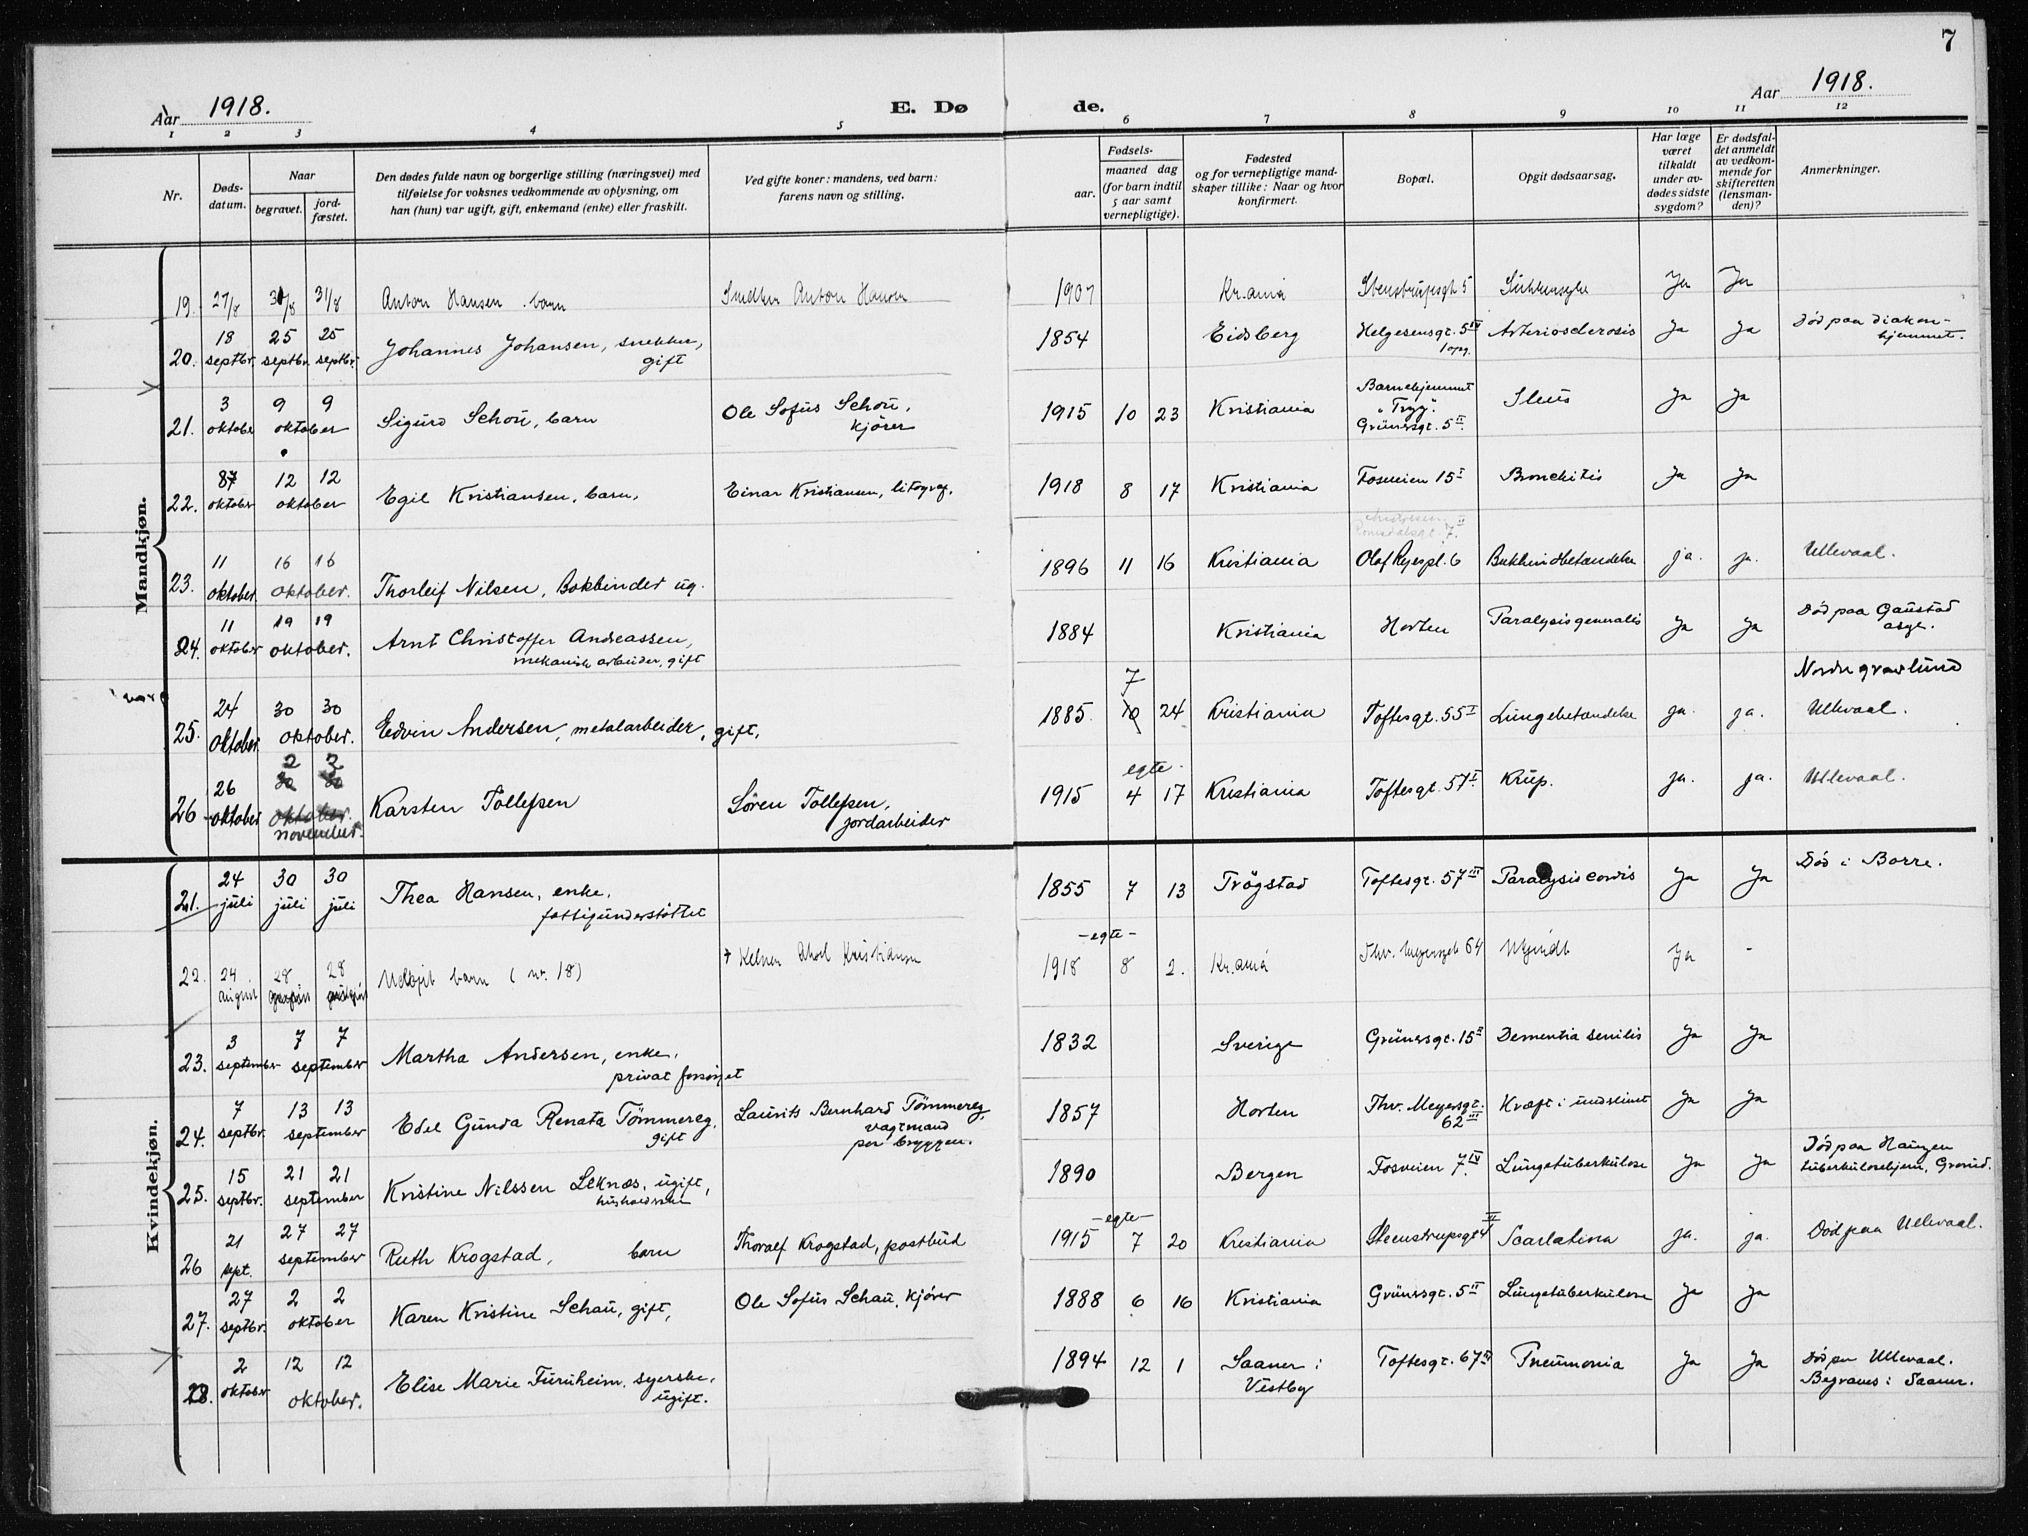 7
Aar 1918. E. Dø de. Aar 1918.
1 2 3 4 5 6 7 8 9 10 11 12
Nr.
Døds-datum.
Naar
begravet.
jord-fæstet.
Den dødes fulde navn og borgerlige stilling (næringsvei) med
tilføielse for voksnes vedkommende av oplysning, om
han (hun) var ugift, gift, enkemand (enke) eller fraskilt.
Ved gifte koner: mandens, ved barn:
farens navn og stilling.
Fødsels-
aar.
maaned dag
(for barn indtil
5 aar samt
vernepligtige).
Fødested
og for vernepligtige mand-
skaper tillike: Naar og hvor
konfirmert.
Bopæl.
Opgit dødsaarsag.
Har læge
været
tilkaldt
under av-
dødes sidste
sygdom?
Er dødsfal-
det anmeldt
av vedkom-
mende for
skifteretten
(lensman-
den)?
Anmerkninger.
Mandkjøn.
19. 27/8 31/8 31/8 Anton Hansen barn Anton Hansen 1907 Kr.ania Stenstrupsgt 5 Ja Ja
20. 18 septbr. 25 septbr. 25 septbr. Johannes Johansen, snekker, gift 1854 Eidsberg Helgesensgt. 5 IV 1 opg. Arteriosclerosis Ja Ja Død paa diakon-hjemmet.
21. 3 oktober 9 9 oktober Sigurd Schou, barn Ole Sofus Schou, kjører 1915 10 23 Kristiania Barnehjemmet "Tryg". Grünersgt. 5 II Ileus Ja Ja
22. 8 oktober 12 12 oktober Egil Kristiansen, barn, Einar Kristiansen, litograf. 1918 8 17 Kristiania Fosveien 15 I Bronchitis Ja Ja
23. 11 oktober. 16 16 oktober. Thorleif Nilsen, Bokbinder ug. 1896 11 16 Kristiania Olaf Ryespl. 6 Bukhindebetændelse ja. ja. Ullevaal.
24. 11 oktober 19 19 oktober. Arnt Christoffer Andreassen, mekanisk arbeider, gift 1884 Kristiania Horten Paralysis generalis Ja Ja Død paa Gaustad asyl.
25. 24 oktober 30 30 oktober. Edvin Andersen, metalarbeider, gift, 1885 10 7 24 Kristiania Toftesgt. 55 I Lungebetændelse ja. ja. Nordre gravlund Ullevaal.
26 26 oktober 30 30 oktober. 2 2 november. Karsten Tollefsen Søren Tollefsen, jordarbeider 1915 egte. 4 17 Kristiania Toftesgt. 57 I Krup. ja. ja. Ullevaal.
Kvindekjøn.
21. 24 juli 30 juli 30 juli Thea Hansen, enke, fattigunderstøttet 1855 7 13 Trøgstad Toftesgt. 57 III Paralysis cordis Ja Ja Død i Borre.
22. 24 august 28 28 Udøpt barn (nr. 18) Kelner Kristiansen 1918 -egte- 8 2. Kr.ania Thv. Meyersgt 64 Ja -
23. 3 september 7 7 september Martha Andersen, enke, privat forsørget 1832 Sverige Grünersgt. 15 II Dementia senilis Ja Ja
24. 7 septbr. 13 13 september Edel Gunda Renata Tømmereg, gift Laurits Bernhard Tømmereg, vagtmand paa bryggen. 1857 Horten Thv. Meyersgt. 62 III Kræft i underlivet Ja Ja
25. 15 septbr. 21 21 september Kristine Nilssen Leknæs, ugift, husholderske 1890 Bergen Fosveien 7 IV Lungetuberkulose Ja Ja Død paa Haugen tuberkulosehjem, Grorud.
26 21 sept. 27 27 september Ruth Krogstad, barn Thoralf Krogstad, postbud 1915 -egte- 7 20 Kristiania Steenstrupsgt 4 Scarlatina ja. ja. Død paa Ullevaal.
27. 27 septbr. 2 2 oktober Karen Kristine Schau, gift, Ole Sofus Schau, kjører 1888 6 16 Kristiania Grünersgt. 5 II Lungetuberkulose Ja Ja
28. 2 oktober 12 12 oktober. Elise Marie Furuheim, syerske, ugift. 1894 12 1 Saaner i Vestby Toftesgt. 67 Pneumonia Ja Ja Død paa Ullevaal. Begraves i Saaner.